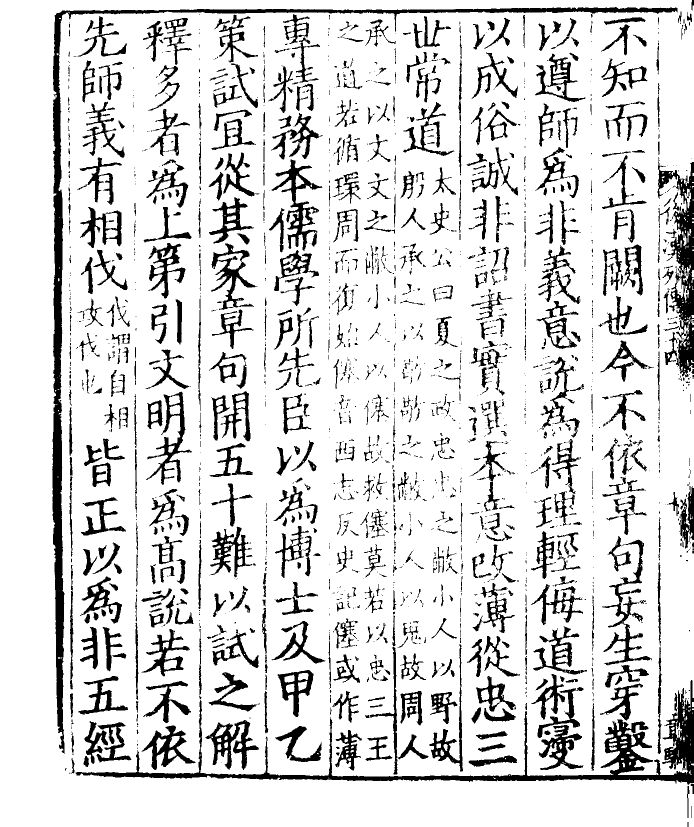 不知而不肯闕也今不依章句妄生穿鑿
以遵師爲非義意說爲得理輕侮道術寖
以成俗誠非詔書實選本意改薄從忠三
丗常道太史公曰夏之政忠忠之敝小人以野故
殷人承之以敬敬之敝小人以鬼故周人
承之以文文之敝小人以僿故救僿莫若以忠三王
之道若循環周而復始僿音西志反史記僿或作薄
專精務本儒學所先臣以爲博士及甲乙
策試宜從其家章句開五十難以試之解
釋多者爲上第引文明者爲高說若不依
先師義有相伐伐謂自相
攻伐也
皆正以爲非五經